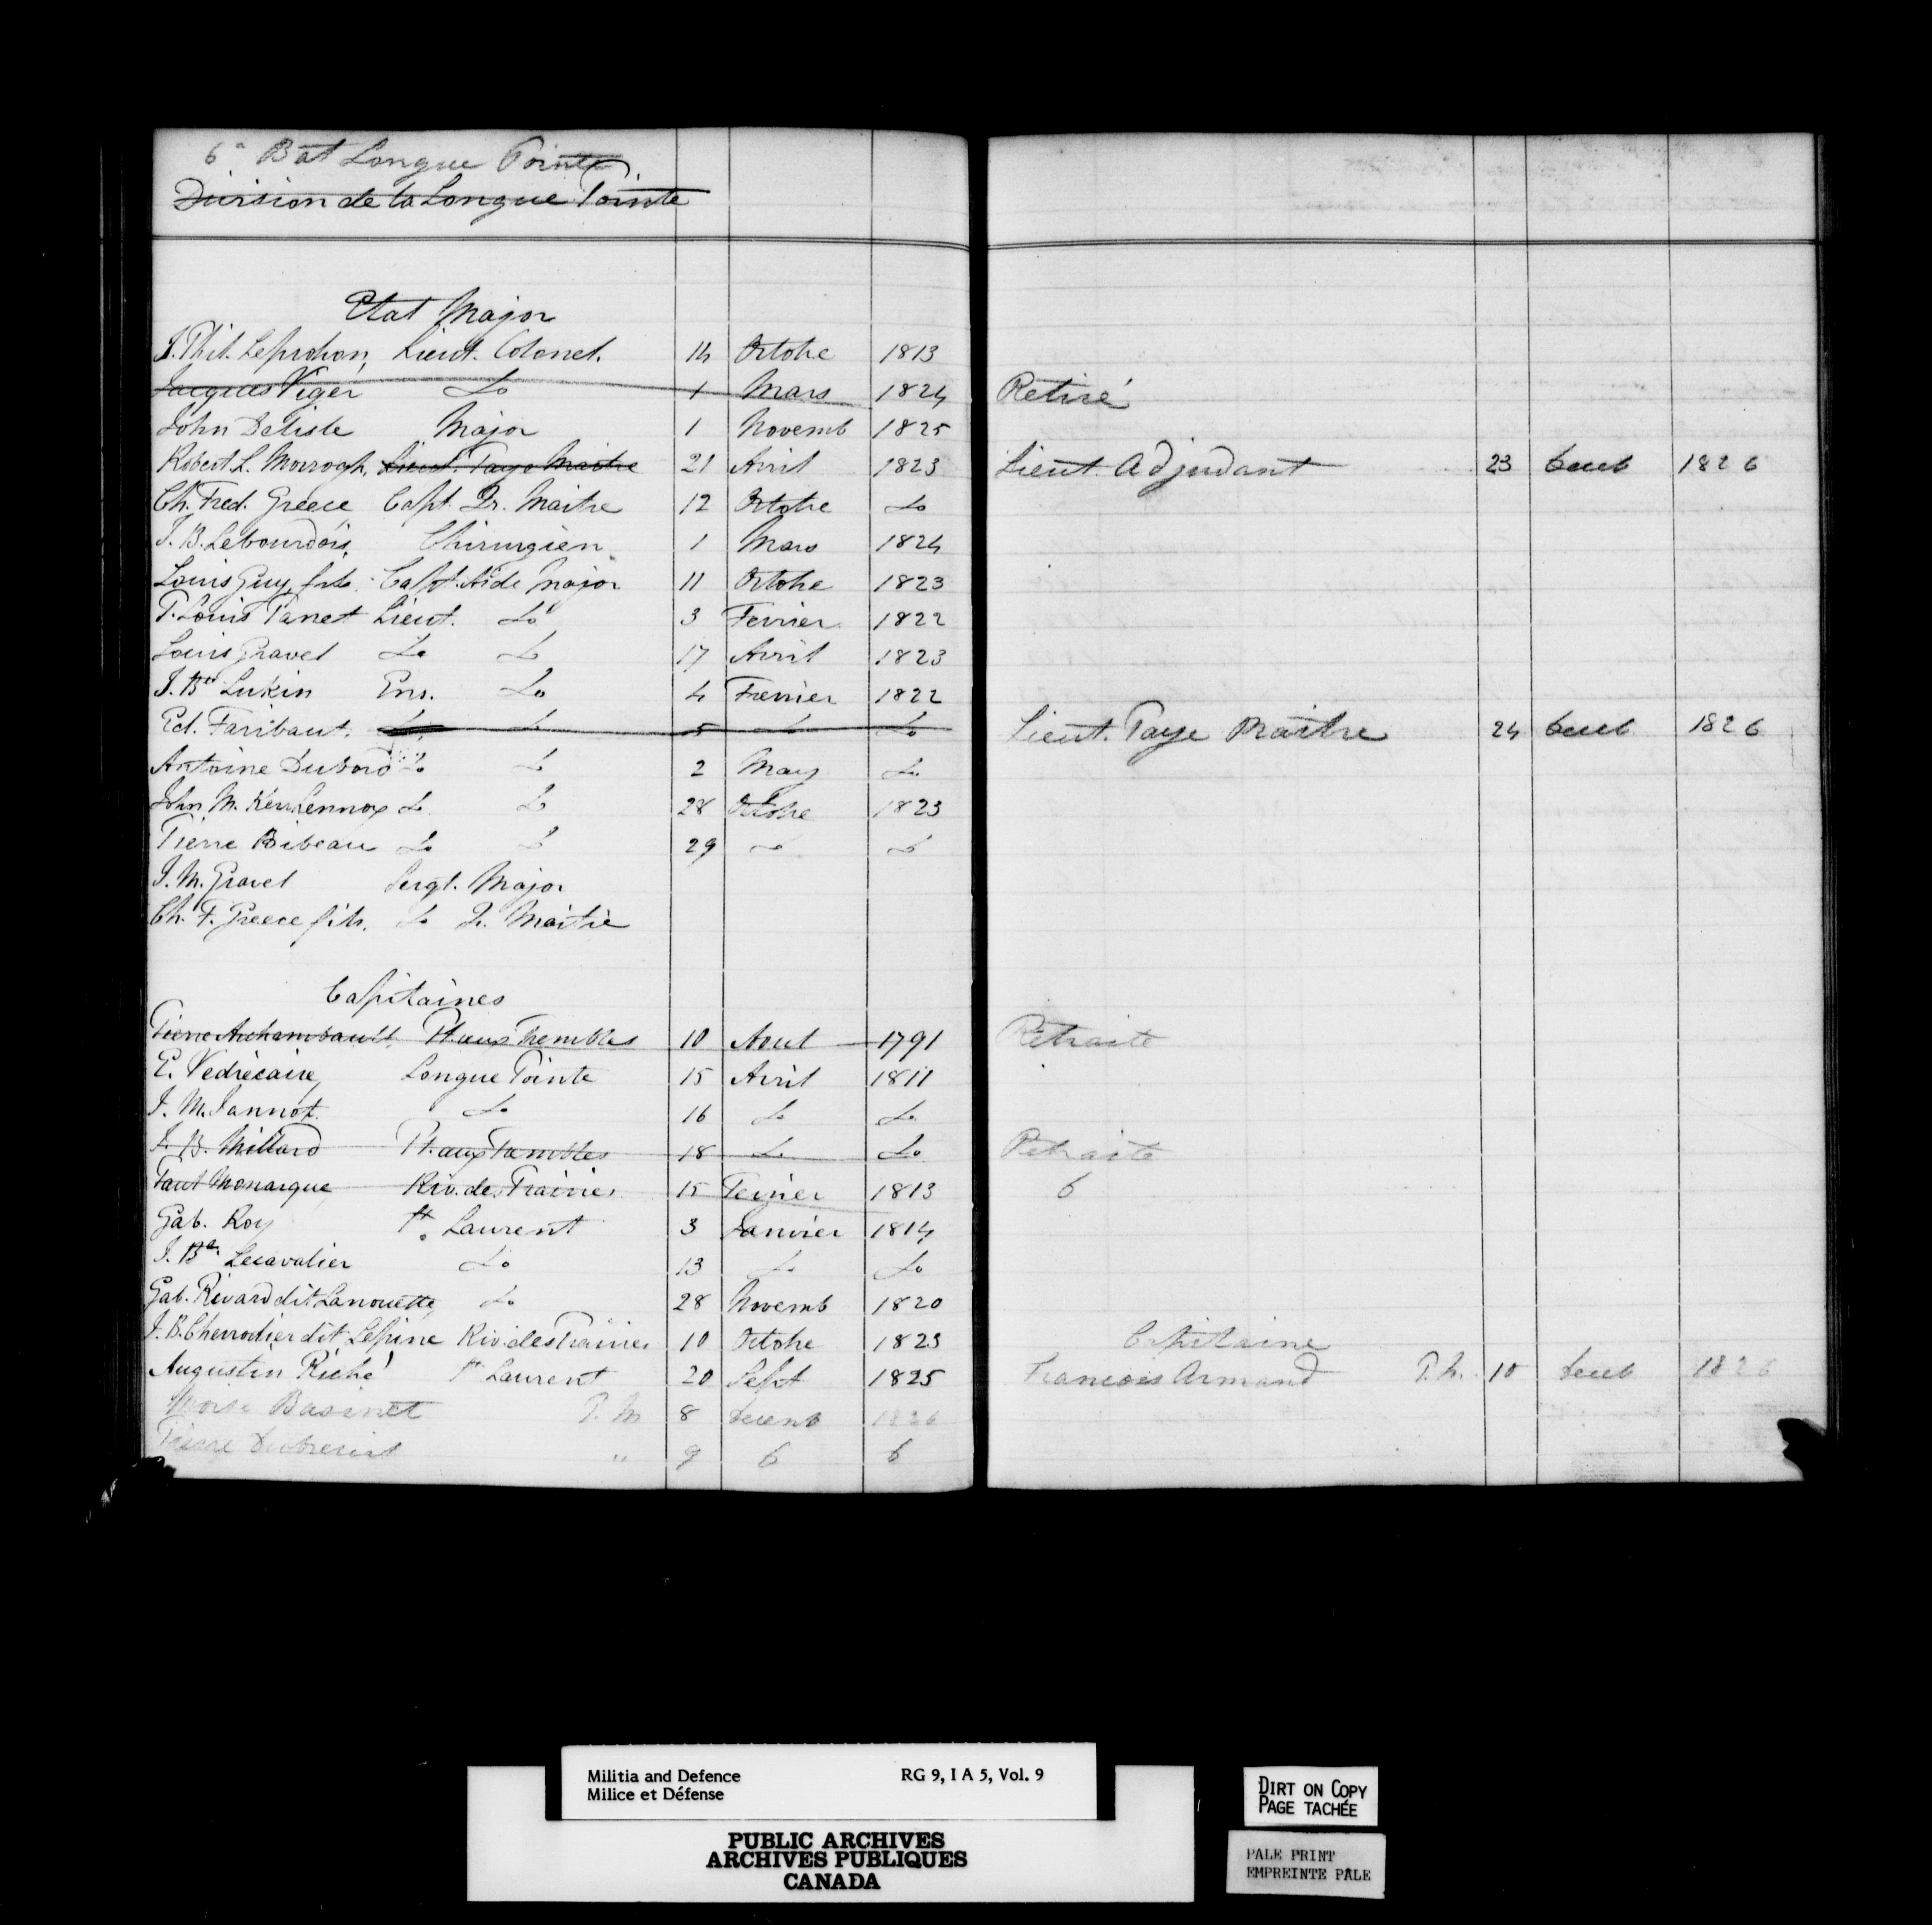 6e Bat Longue Pointe
Division de la Longue Pointe
Etat Major
J. Phil. Leprohon, Lieut. Colonel. 14 Octobre 1813
Jacques Viger Do 1 Mars 1824 Retiré
John Delisle Major 1 Novemb 1825
Robert L. Morrogh, Lieut. Paye Maitre 21 Avril 1823 Lieut. Adjudant 23 Decb 1826
Ch. Fred. Greece Capt. Qr. Maitre 12 Octobre Do
J. B. Lebourdois, Chirurgien 1 Mars 1824
Louis Guy, fils. Capt. Aide Major 11 Octobre 1823
P. Louis Panet Lieut. Do 3 Fevrier 1822
Louis Gravel Do Do 17 Avril 1823
J. Bte Lukin Ens. Do 4 Fevrier 1822
Ed. Faribaut. Do Do 5 Do Do Lieut. Paye Maitre 24 Decb 1826
Antoine Dubord Do Do 2 May Do
John M. Lennox Do Do 28 Octobre 1823
Pierre Bibeau Do Do 29 Do Do
J. M. Gravel Sergt. Major
Ch. F. Greece fils. Do Qr. Maitre
Capitaines
Pierre Archambault, Pt. aux Trembles 10 Aout 1791 Retraite
E. Vedrecaire, Longue Pointe 15 Avril 1811
J. M. Jannot Do 16 Do Do
J. B. Millard Pt. aux Trembles 18 Do Do Retraite
Paul Monarque Riv. des Prairies 15 Fevrier 1813 Do
Gab. Roy St. Laurent 3 Janvier 1814
J. Bte. Lecavalier Do 13 Do Do
Gab. Rivard dit Lanouette, Do 28 Novemb 1820
J. B. Chevodier dit Lepine Riv. des Prairies 10 Octobre 1823 Capitaine
Augustin Riché St. Laurent 20 Sept 1825 Francois Armand P. M. 10 Decb 1826
Moise Basinet P. M 8 Decemb 1826
Pierre " 9 Do Do
Militia and Defence RG 9, I A 5, Vol. 9
Milice et Défense
PUBLIC ARCHIVES
ARCHIVES PUBLIQUES
CANADA
DIRT ON COPY
PAGE TACHÉE
PALE PRINT
EMPREINTE PÂLE